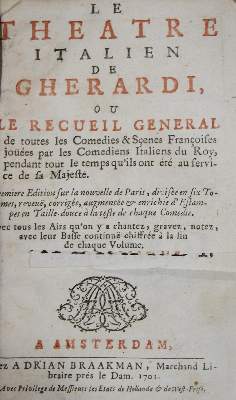 LE
THEATRE
ITALIEN
DE
GHERARDI,
OU
LE RECUEIL GENERAL
de toutes les Comedies & Scenes Françoises
jouées par les Comediens Italiens du Roy,
pendant tout le temps qu'ils ont été au servi-
ce de sa Majesté.
Edition sur la nouvelle de Paris, divisée en six To-
mes, reveuë, corrigés, augmentée & enrichie d'Estam-
pes en Taille-douce à la teste de chaque Comedie.
avec tous les Airs qu'on y a chantez, gravez, notez,
avec leur Basse continuë chiffrée à la fin
de chaque Volume.
A AMSTERDAM,
ez ADRIAN BRAAKMAN, Marchand Li-
braire prés le Dam. 1701.
Avec Privilege de Messieurs les Etats de Hollande & de West-Frise.